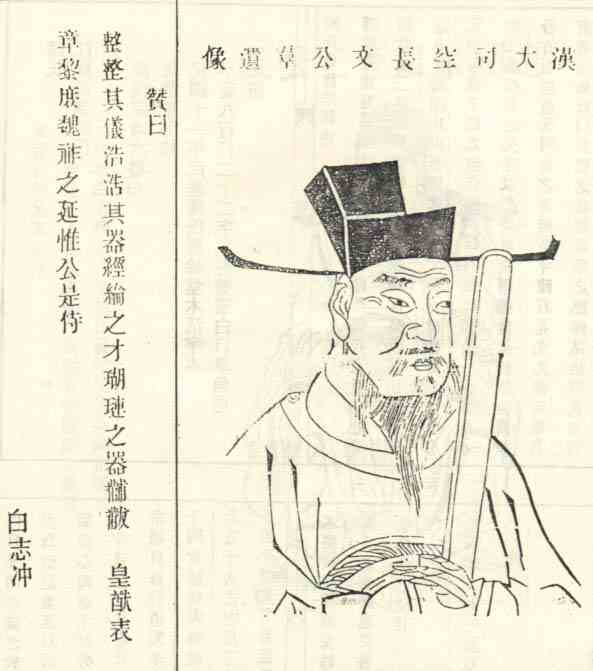 漢大司空長文公羣遺像
贊曰
整整其儀浩浩其器經綸之才瑚璉之器黼黻 皇猷表
章黎庶魏祚之延惟公是侍
白志冲